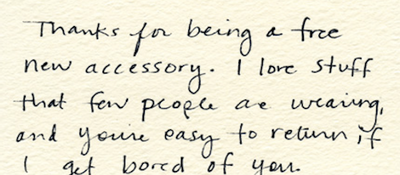 Thanks for being a free
new accessory. I love stuff
that few people are wearing,
and you're easy to return if
I get bored of you.